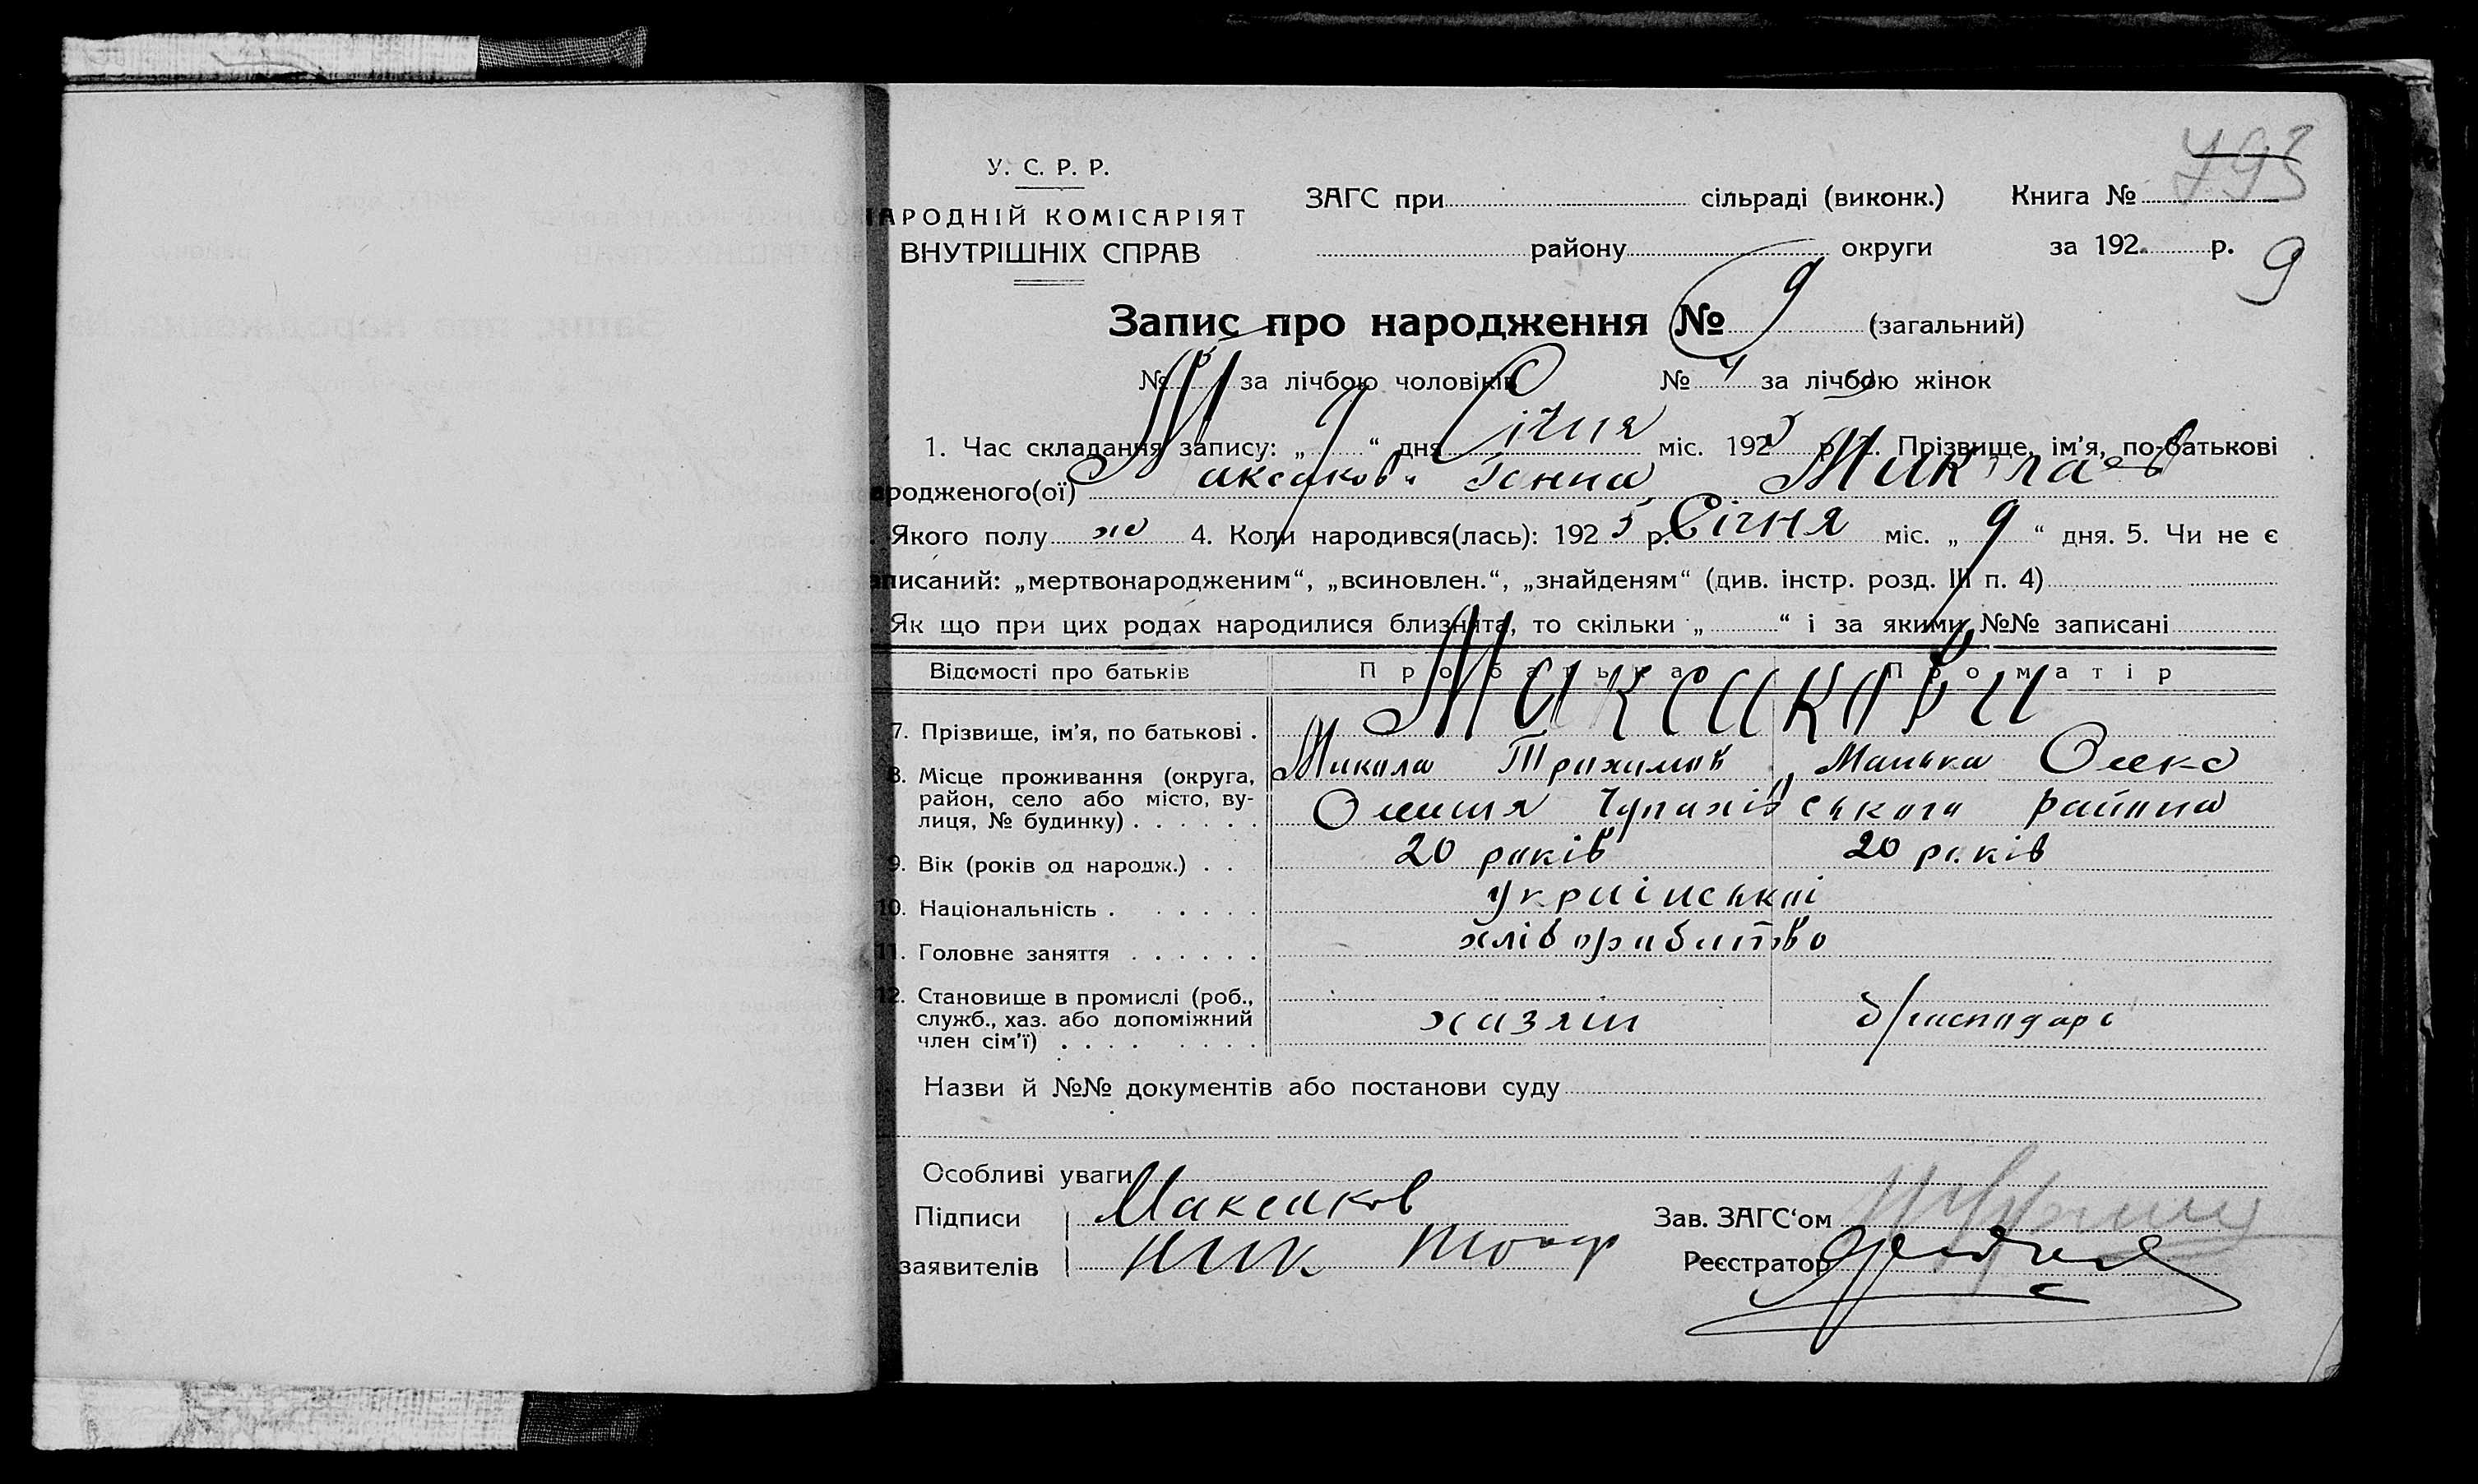 793
У. С. Р. Р.
НАРОДНІЙ КОМІСАРІЯТ
ВНУТРІШНІХ СПРАВ
ЗАГС при сільраді (виконк.) Книга №
району округи за 192 р. 9
Запис про народження № 9 (загальний)
№ за лічбою чоловіків № 4 за лічбою жінок
1. Час складання запису: „ 9 “ дня Січня міс. 192 5 р. 2. Прізвище, ім’я, по-батькові
родженого(ої) Максакова Ганна Миколаев
Якого полу ж 4. Коли народився(лась): 192 5 р. Січня міс. „ 9 “ дня. 5. Чи не є
записаний: „мертвонародженим“, „всиновлен.“, „знайденям“ (див. інстр. розд. III п. 4)
Як що при цих родах народилися близнята, то скільки „ “ і за якими №№ записані
Відомості про батьків Про батька Про матір
7. Прізвище, ім’я, по батькові . Максакови
8. Місце проживання (округа, Микола Трохимов
район, село або місто, ву-
лиця, № будинку) . . . . . . Олешня Чупахівського района
9. Вік (років од народж.) . . 20 років 20 років
10. Національність . . . . . . українські
11. Головне заняття . . . . . . хліборобство
12. Становище в промислі (роб.,
служб., хаз. або допоміжний хазяін
член сім’ї) . . . . . . . .
Назви й №№ документів або постанови суду
Особливі уваги
Підписи Максаков
заявителів Ник
Зав. ЗАГС‘ом
Реєстратор